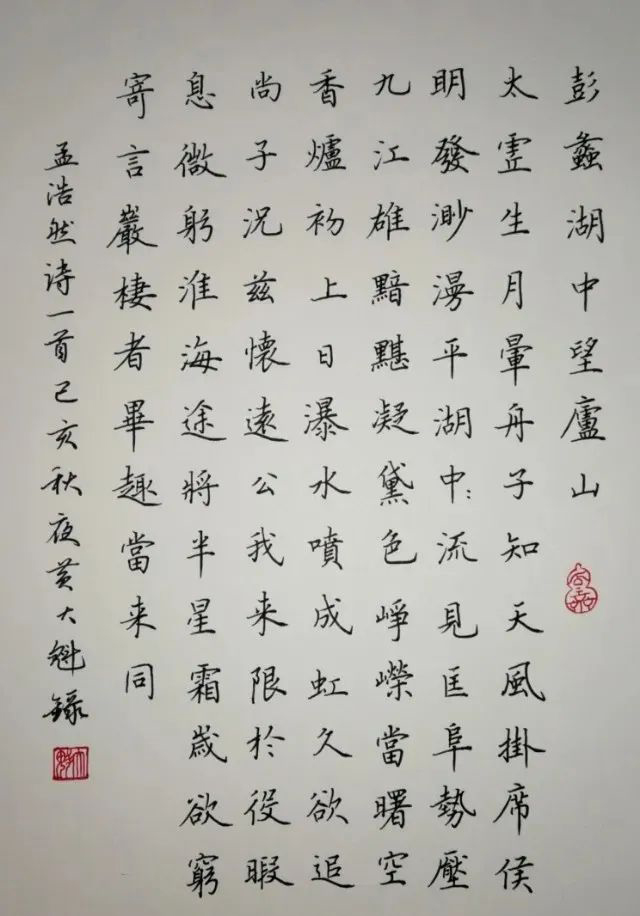 彭蠡湖中望廬山
太虛生月暈舟子知天風掛席候
明發渺漫平湖中:流見匡阜勢壓
九江雄黯黮凝黛色崢嶸當曙空
香爐初上日瀑水噴成虹久欲追
尚子況兹懷遠公我来限於役暇
息微躬淮海途將半星霜歲欲窮
寄言巖棲者畢趣當来同
孟浩然诗一首己亥秋夜黄大魁錄